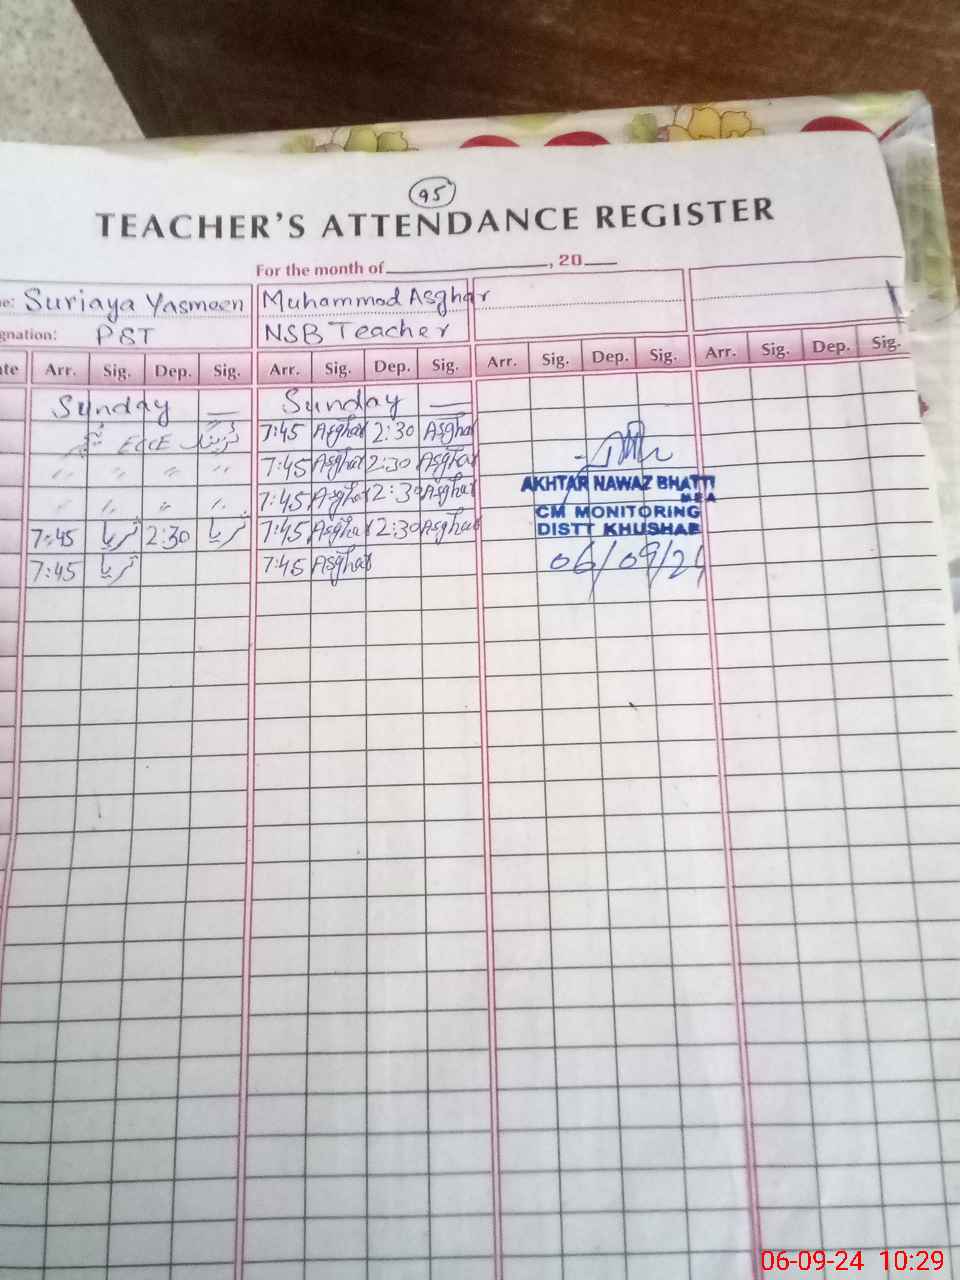 95
TEACHER'S ATTENDANCE REGISTER
For the month of , 20
me: Suriaya Yasmeen Muhammad Asghar
gnation: PST NSB Teacher
ate Arr. Sig. Dep. Sig. Arr. Sig. Dep. Sig. Arr. Sig. Dep. Sig. Arr. Sig. Dep. Sig.
Sunday — Sunday —
ECCE 7:45 Asghar 2:30 Asghar
〃 〃 〃 〃 7:45 Asghar 2:30 Asghar
〃 〃 〃 〃 7:45 Asghar 2:30 Asghar
7:45 ثریا 2:30 ثریا 7:45 Asghar 2:30 Asghar
7:45 ثریا 7:45 Asghar
AKHTAR NAWAZ BHATTI
MEA
CM MONITORING
DISTT KHUSHAB
06/09/24
06-09-24 10:29